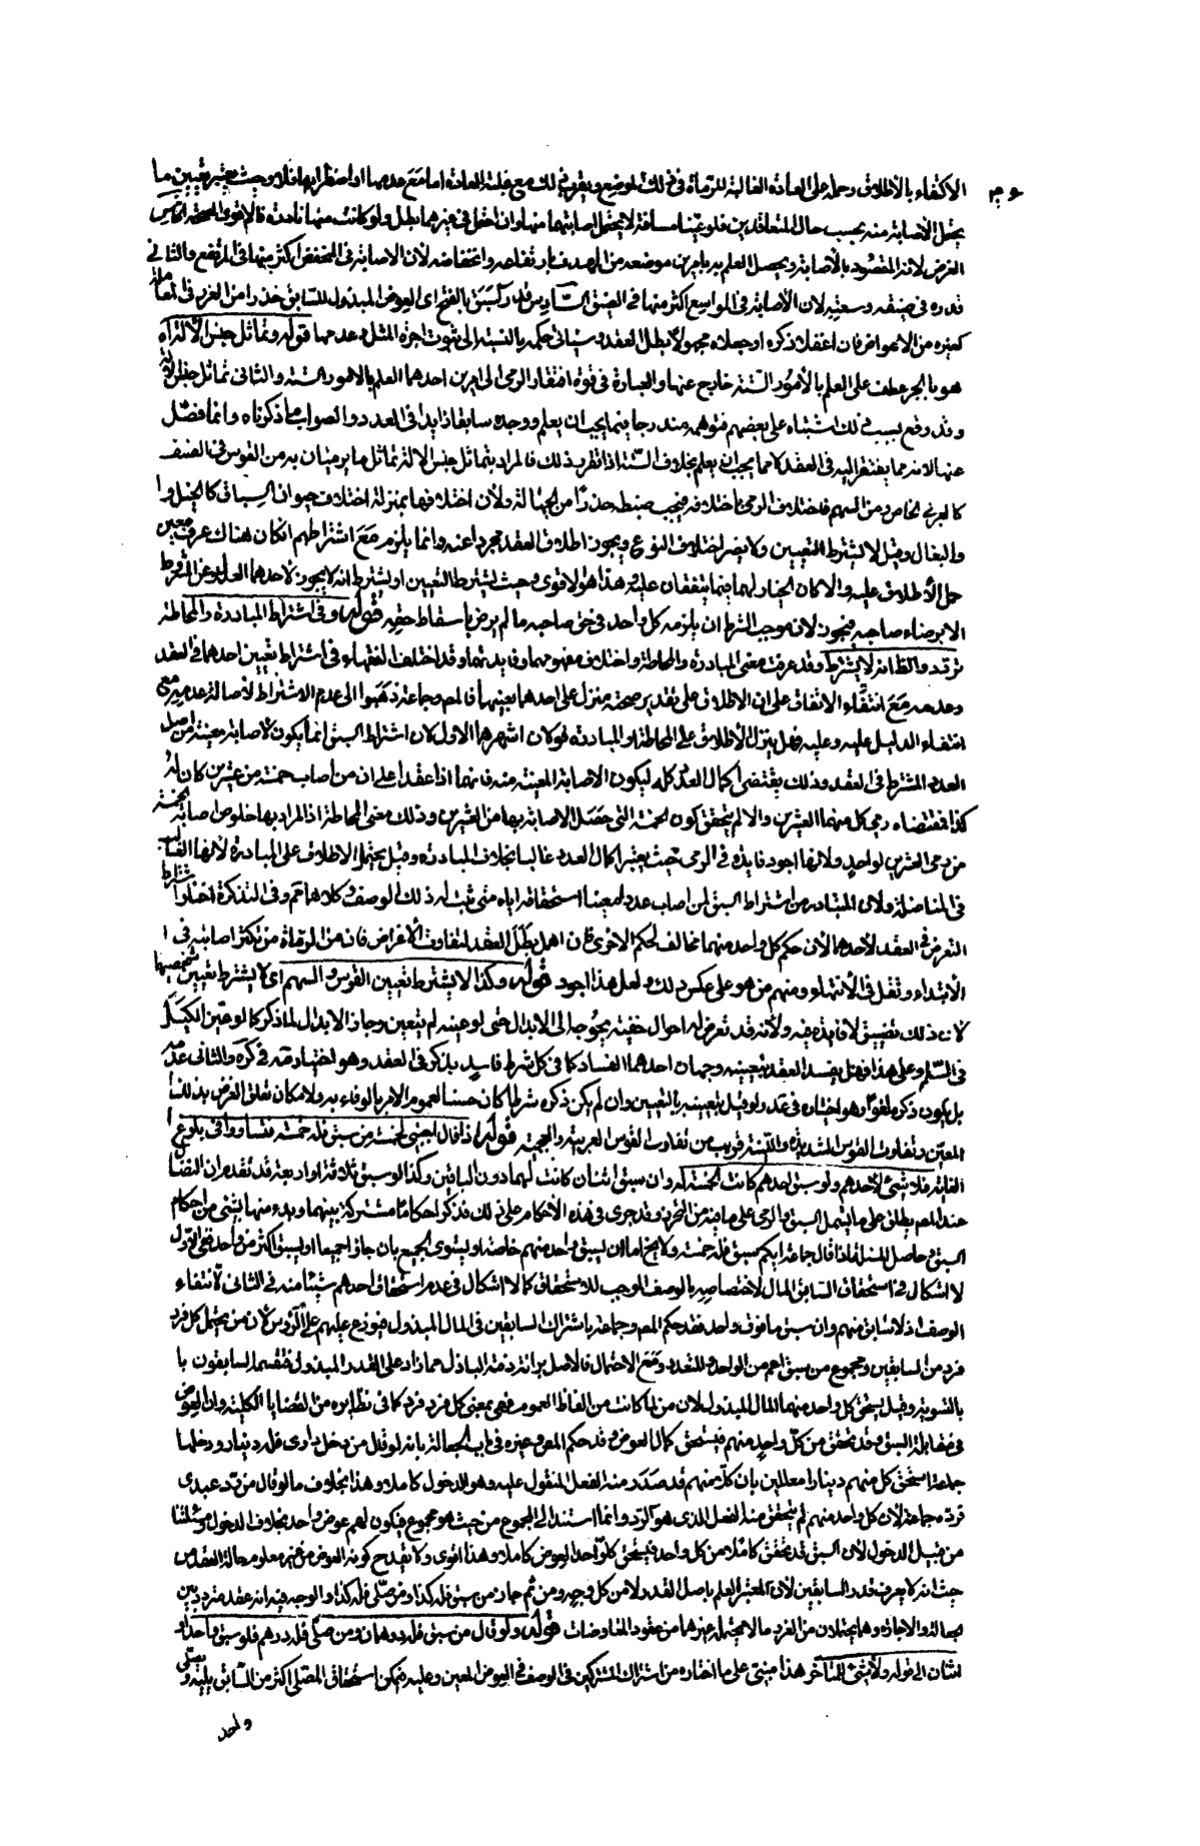 الاكتفاء بالاطلاق وحمله على العادة الغالبة للرماة في ذلك الموضع ويقرب ذلك مع غلبة العادة اما مع عدمها او اضطرابها فلا وحيث يعتبر تعيين ما
يحتمل الاصابة منه بحسب حال المتعاقدين فلو عينا مسافة لا يحتمل اصابتهما منها وان احتمل في غيرهما بطل ولو كانت منها نادرة فالاقوى الصحة
الغرض لانه المقصود بالاصابة ويحصل العلم به بامرين موضعه من الهدف بارتفاعه وانخفاضه لان الاصابة في المنخفض اكثر منها في المرتفع والثاني
قدره في ضيقه وسعته لان الاصابة في الواسع اكثر منها في الضيق السادس قدر السبق بالفتح اى العوض المبذول للسابق حذرا من الغرر في
كغيره من الاعواض فان اغفلا ذكره او جعلاه مجهولا بطل العقد وسياتي حكمه بالنسبة الى ثبوت اجرة المثل وعدمها قوله وتماثل جنس الالة
هو بالجر عطف على العلم بالامور الستة خارج عنها والعبارة في قوة افتقار الرمى الى امرين احدهما العلم بالامور الستة والثاني تماثل جنس الالة
وقد وقع بسبب ذلك اشتباه على بعضهم فتوهمه مندرجا فيما يجب ان يعلم ووجده سابعا زايدا في العدد والصواب ما ذكرناه وانما فصل
عنها لانه مما يفتقر اليه في العقد لا مما يجب ان يعلم بخلاف الستة اذا تقرر ذلك فالمراد بتماثل جنس الالة تماثل ما يرميان به من القوس في الصنف
كالعربي والخاص من السهم فاختلاف الرمى باختلافه فيجب ضبطه حذرا من الجهالة ولان اختلافها بمنزلة اختلاف حيوان السباق كالخيل و
والبغال وقيل لا يشترط التعيين ولا يضر اختلاف النوع ويجوز اطلاق العقد مجردا عنه وانما يلزم مع اشتراطهم ان كان هناك عرف معين
حمل الاطلاق عليه والا كان الخيار لهما فيما يتفقان عليه وهذا هو الاقوى وحيث يشترط التعيين او يشترطانه لا يجوز لاحدهما العدول عن المشروط
الا برضاء صاحبه فيجوز لان موجب الشرط ان يلزمه كل واحد في حق صاحبه ما لم يرض باسقاط حقه قوله وفي اشتراط المبادرة والمحاطة
تردد والظاهر انه لا يشترط وقد عرفت معنى المبادرة والمحاطة واختلاف مفهومهما وفايدتهما وقد اختلف الفقهاء في اشتراط تعيين احدهما في العقد
وعدمه مع انتفاء الاتفاق على ان الاطلاق على تقدير صحته منزل على احدهما بعينها فالمص وجماعة ذهبوا الى عدم الاشتراط لاصالة عدمه
انتفاء الدليل عليه وعليه فهل ينزل الاطلاق على المحاطة او المبادرة قولان اشهرهما الاول لان اشتراط السبق انما يكون لاصابة معينة من اصل
العدد المشترط في العقد وذلك يقتضي اكمال العدد كله ليكون الاصابة المعينة منه فانهما اذا عقدا على ان من اصاب خمسة من عشرين كان له
كذا فمقتضاه رمى كل منهما العشرين والا لم يتحقق كون الخمسة التي حصل الاصابة بها من العشرين وذلك معنى المحاطة اذ المراد بها خلوص اصابة الخمسة
من رمى العشرين لواحد ولانها اجود فايدة في الرمى حيث يعتبر اكمال العدد غالبا بخلاف المبادرة وقيل يحمل الاطلاق على المبادرة لانها الغالب
في المناضلة ولان المتبادر من اشتراط السبق لمن اصاب عددا معينا استحقاقه اياه متى ثبت له ذلك الوصف وكلاهما وفي التذكرة اختار اشتراط
التعرض في العقد لاحدهما لان حكم كل واحد منهما مخالف لحكم الاخرى فان اهمل بطل العقد لتفاوت الاغراض فان من الرماة من تكثر اصابته في
الابتداء وتقل في الانتهاء ومنهم من هو على عكس ذلك ولعل هذا اجود قوله وكذا لا يشترط تعيين القوس والسهم اى لا يشترط تعيين شخصهما
لان ذلك تضييق لا فايدة فيه ولانه قد تعرض له احوال خفية يحوجه الى الابدال حتى لو عينه لم يتعين وجاز الابدال لما ذكر كما لو عين الكيل
في السلم وعلى هذا فهل يفسد العقد بتعيينه وجهان احدهما الفساد كما في كل شرط فاسد يذكر في العقد وهو اختياره في كره والثاني عدمه
بل يكون ذكره لغوا وهو اختياره في عد ولو قيل بتعيينه بالتعيين وان لم يكن ذكره شرطا كان حسنا لعموم الامر بالوفاء به ولامكان تعلق الغرض بذلك
المعين وتفاوت القوس الشديدة واللينة قريب من تفاوت القوس العربية والعجمية قوله اذا قال اجنبي لخمسة من سبق فله خمسة فتساووا في بلوغ
الغاية فلا شئ لاحدهم ولو سبق احدهم كانت الخمسة له وان سبق اثنان كانت لهما دون الباقين وكذا لو سبق ثلاثة او اربعة قد تقدم ان النضال
عند المص يطلق على ما يشمل السبق والرمى على ما فيه من التحرير وقد جرى في هذه الاحكام على ذلك فذكر احكاما مشتركة بينهما وبدء منها بشئ من احكام
السبق وحاصل المسئلة اذا قال جماعة ايكم سبق فله خمسة ولا يخ اما ان يسبق واحد منهم خاصة او يستوى الجميع بان جاؤا جميعا او يسبق اكثر من واحد ففي الاول
لا اشكال في استحقاق السابق المال لاختصاصه بالوصف الموجب للاستحقاق كما لا اشكال في عدم استحقاق احدهم شيئا منه في الثاني لانتفاء
الوصف اذ لا سابق منهم وان سبق ما فوق واحد فقد حكم المص وجماعة باشتراك السابقين في المال المبذول فيوزع عليهم على الرؤس لان من يحتمل كل فرد
فرد من السابقين ومجموع من سبق اعم من الواحد والمتعدد ومع الاحتمال فالاصل براءة ذمة الباذل مما زاد على القدر المبذول فيقسمه السابقون با
بالسوية وقيل يستحق كل واحد منهما المال المبذول لان من لما كانت من الفاظ العموم فهي بمعنى كل فرد فرد كما في نظايره من القضايا الكلية وان العوض
في مقابلة السبق وقد تحقق من كل واحد منهم فيستحق كمال العوض وقد حكم المص وغيره في باب الجعالة بانه لو قال من دخل دارى فله دينار ودخلها
جماعة استحق كل منهم دينارا معللين بان كلا منهم قد صدر منه الفعل المقول عليه وهو الدخول كاملا وهذا بخلاف ما لو قال من رد عبدى
فرده جماعة لان كل واحد منهم لم يتحقق منه الفعل الذى هو الرد وانما استند الى المجموع من حيث هو مجموع فيكون لهم عوض واحد بخلاف الدخول ومسئلتنا
من قبيل الدخول لان السبق قد تحقق كاملا من كل واحد فيستحق كل واحد العوض كاملا وهذا اقوى ولا يقدح كونه العوض من غير معلوم حالة العقد من
حيث انه لا يعرف قدر السابقين لان المعتبر العلم باصل القدر لا من كل وجه ومن ثم جاز من سبق فله كذا ومن صلى فله كذا والوجه فيه انه عقد متردد بين
الجعالة والاجارة وهما يحتملان من الغرر ما لا يحتمله غيرهما من عقود المعاوضات قوله ولو قال من سبق فله درهمان ومن صلى فله درهم فلو سبق واحد او
اثنان الى قوله ولا شئ للمتاخر هذا مبنى على ما اختاره من اشتراك المشتركين في الوصف في العوض المعين وعليه فيمكن استحقاق المصلى اكثر من السابق
واحد